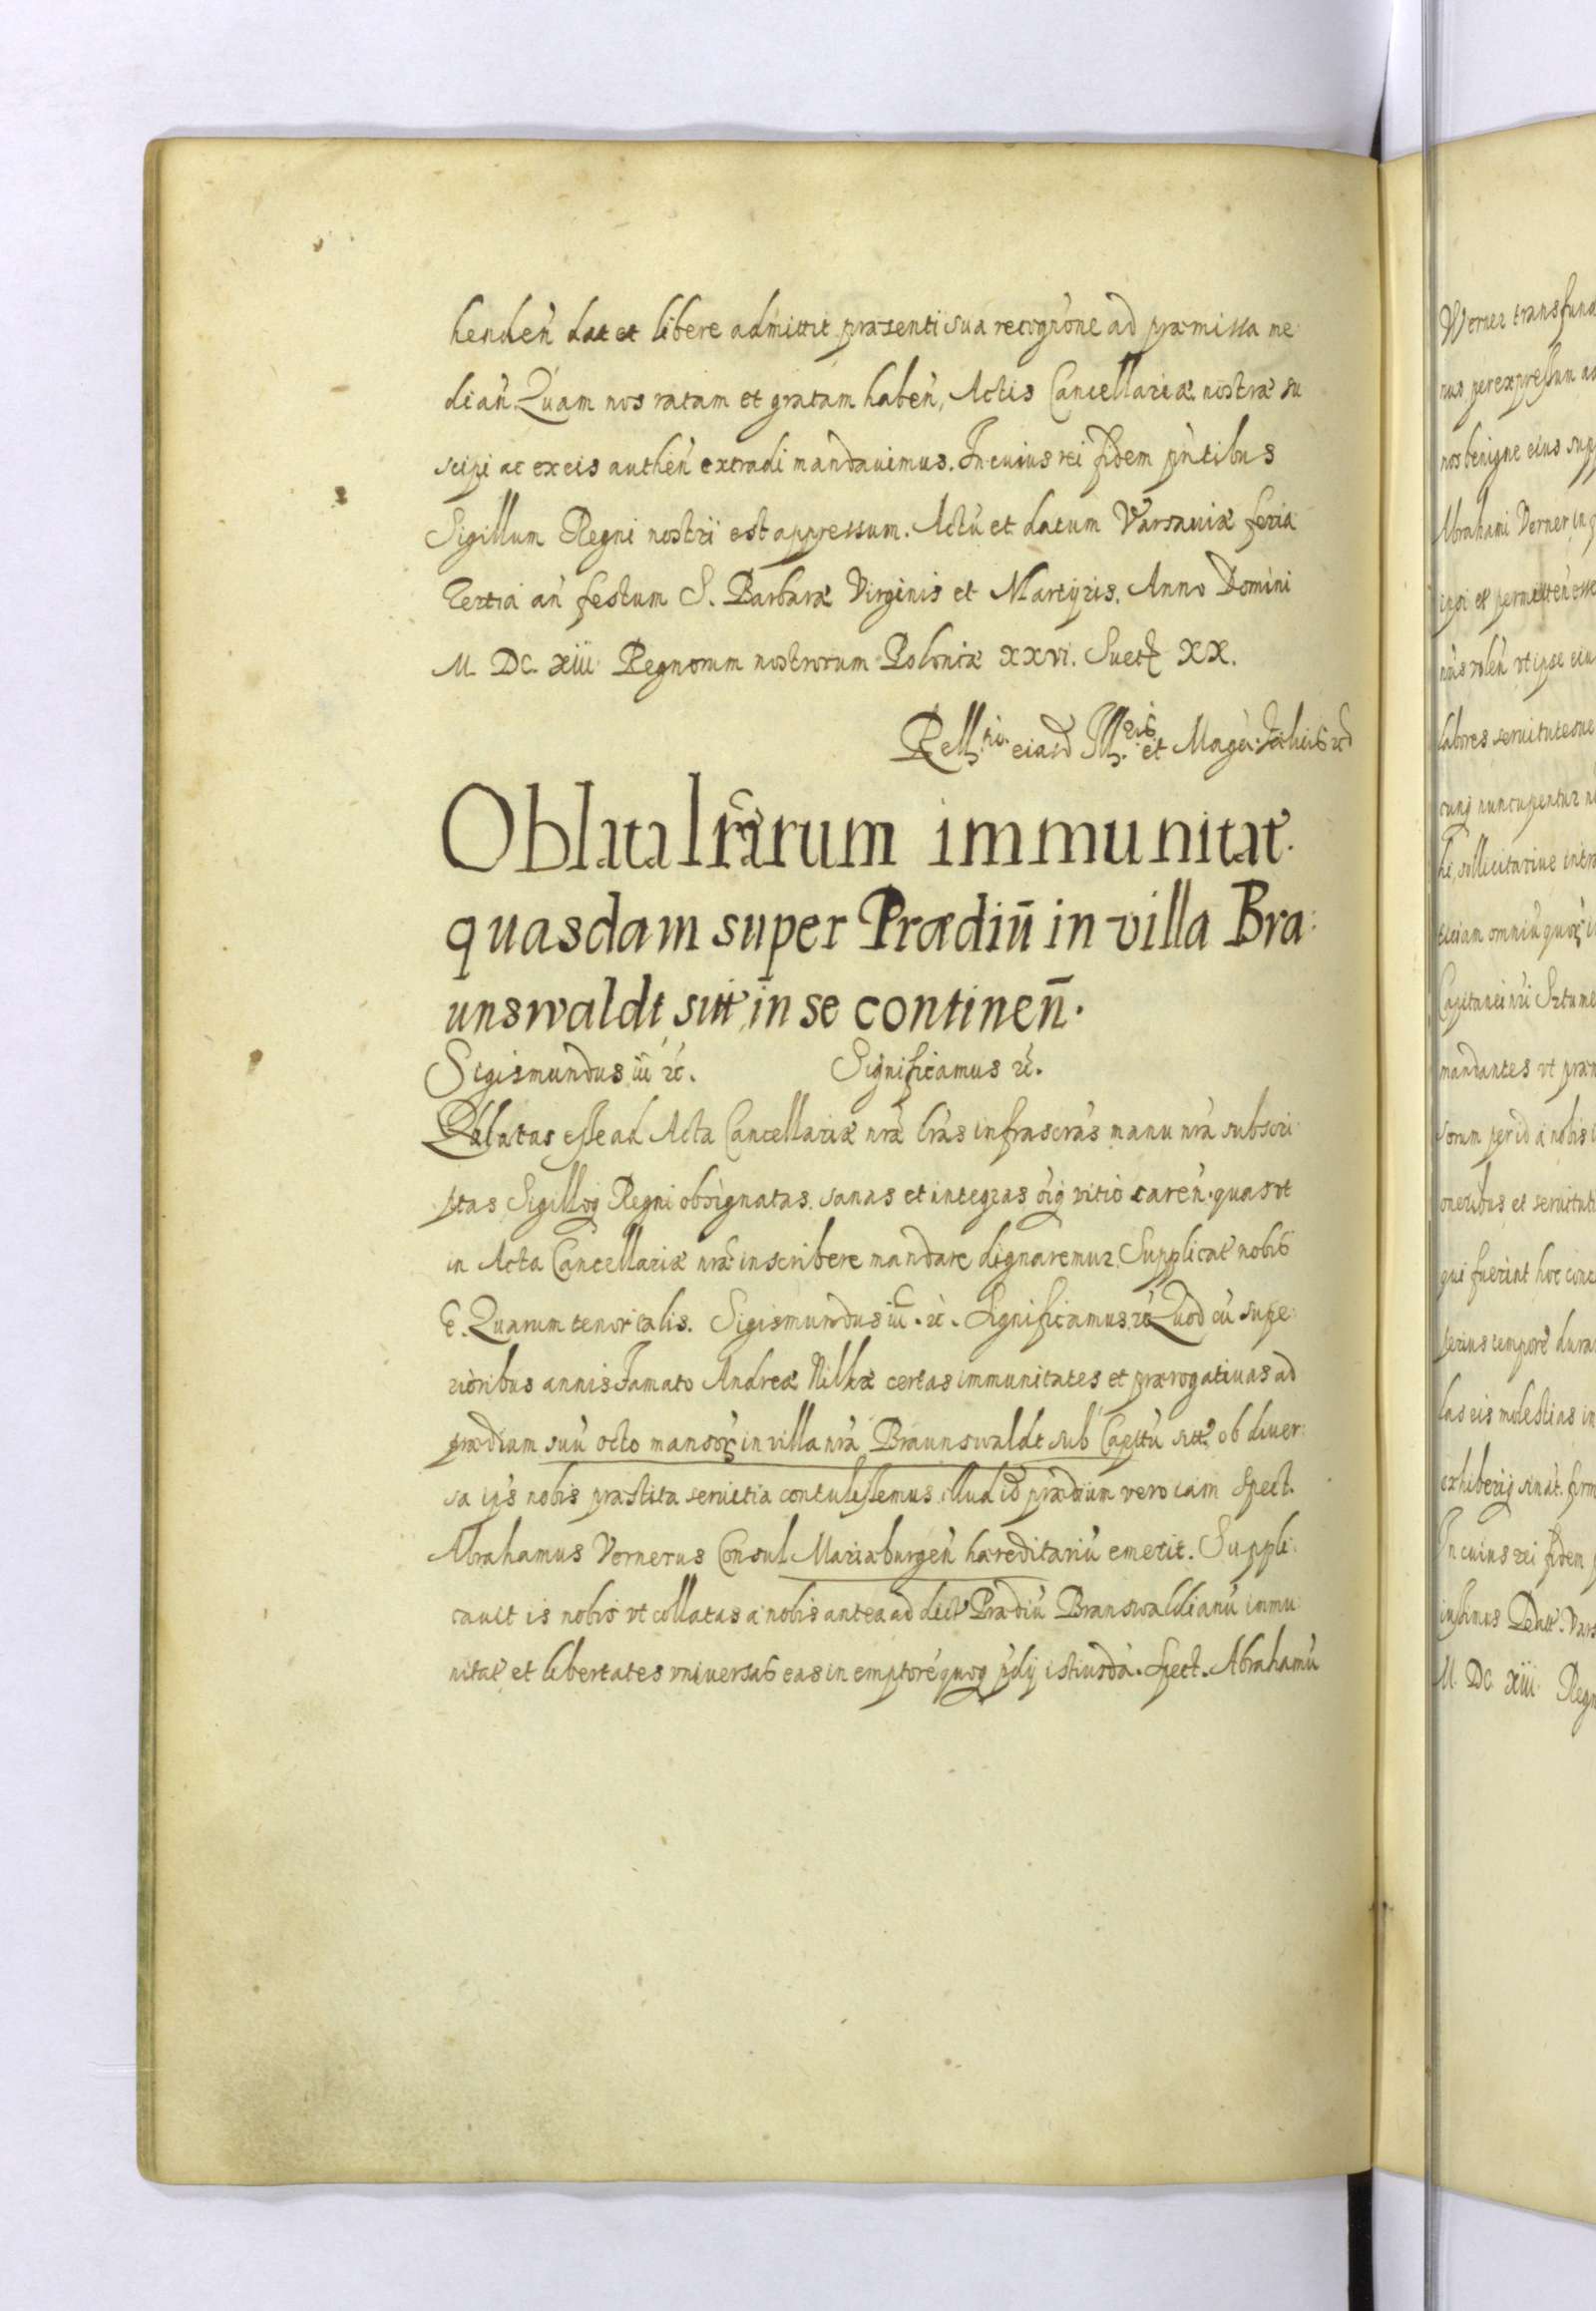 henden̄ dat et libere admittit præsenti sua recogn̄one ad præmissa me
dian̄ Quam nos ratam et gratam haben̄, Actis Cancellariæ nostræ su
scipi ac ex eis authen̄ extradi mandauimus. In cuius rei fidem pn̄tibus
Sigillum Regni nostri est appressum. Actū et datum Varsauiæ feria
Tertia an̄ festum S. Barbaræ Virginis et Martyris. Anno Domini
M. DC. xiii Regnorum nostrorum Poloniæ XXVI. Suet XX.
Rell eiusd Ill et Magci
Oblata lrārum immunitat
quasdam super Prædiū in villa Bra
unswaldt sitt in se continen̄.
Sigismundus iii ꝛc. Significamus ꝛc.
Oblatas esse ad Acta Cancellariæ nræ lrās infrascrās manu nrā subscri
ptas Sigilloq Regni obsignatas sanas et integras oīq vitio caren̄. quas vt
in Acta Cancellariæ nræ inscribere mandare dignaremur, Supplicat nobis
E. Quarum tenor talis. Sigismundus iii. ꝛc. Significamus ꝛc Quod cū supe
rioribus annis Famato Andreæ Nilkæ certas immunitates et prærogatiuas ad
prædium suū octo mansoꝝ in villa nrā Braunswaldt sub Capitū sitt ob diuer
sa ips nobis præstita seruitia contulissemus illud id prædium vero iam Spect.
Abrahamus Vernerus Consul Mariæburgen̄ hæreditariū emerit. Suppli
cauit is nobis vt collatas a nobis antea ad dict Prædiū Branswaldianū immu
nitat et libertates vniuersas eas in emptorē quoq pdij istiusdā. Spect. Abrahamū
Werner transfund
nus per expressum
nos benigne eius supp
Abrahami Verner in
ipsi et permitten̄ esse
volen̄ vt ipse eiu
labores seruitutesue
cunq nuncupentur
sollicitariue intra
omniū quoꝝ
Capitanei nri Sztume
mandantes vt præm
sorum per id a nobis
oneribus et seruituti
qui fuerint hoc conc
tempore dura
las eis molestias in
exhiberiq sinat. firm
In cuius rei fidem
iussimus Datt. Vars
M. DC. xiii Regn